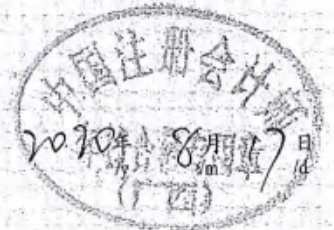 中国注册会计师
2020年 8月 17日
/y /m /d
(广西)